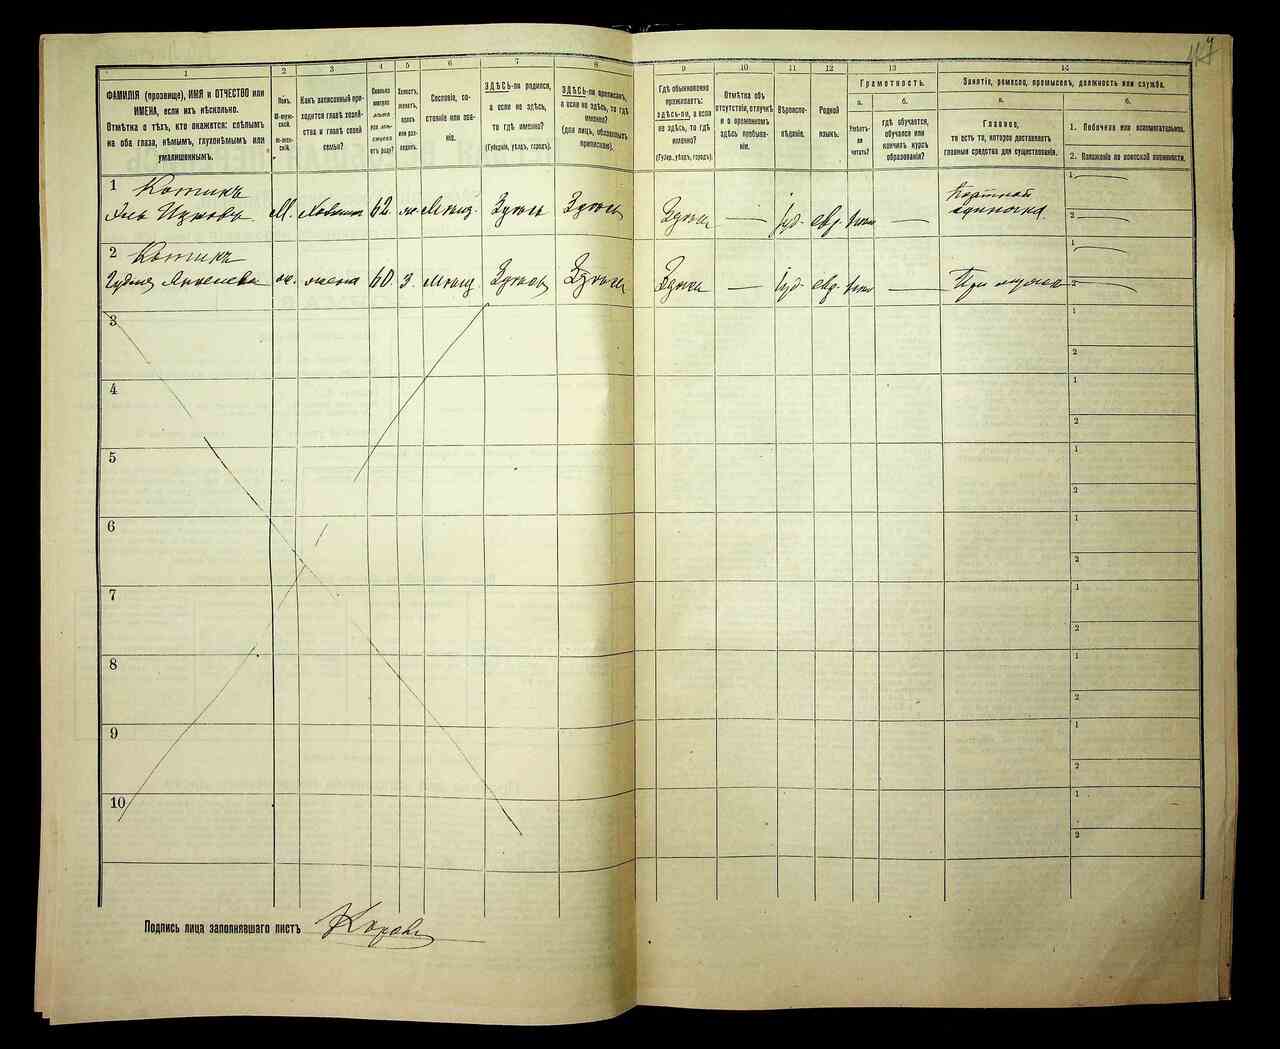 1
2
3
4
5
6
7
8
ФАМИЛІЯ (прозвище), ИМЯ и ОТЧЕСТВО или
ИМЕНА, если ихъ нѣсколько.
Отмѣтка о тѣхъ, кто окажется: слѣпымъ
на оба глаза, нѣмымъ, глухонѣмымъ или
умалишеннымъ.
Полъ.
М-муж-
ской.
Ж-жен-
скій.
Какъ записанный при-
ходится главѣ хозяй-
ства и главѣ своей
семьи?
Сколько
минуло
лѣтъ
или мѣ-
сяцевъ
отъ роду?
Холостъ,
женатъ,
вдовъ
или раз-
веденъ.
Сословіе, со-
стояніе или зва-
ніе.
ЗДѢСЬ-ли родился,
а если не здѣсь,
то гдѣ именно?
(Губернія, уѣздъ, городъ).
ЗДѢСЬ-ли приписанъ,
а если не здѣсь, то гдѣ
именно?
(для лицъ, обязанныхъ
припискою).
9
10
11
12
13
14
Гдѣ обыкновенно
проживаетъ:
здѣсь-ли, а если
не здѣсь, то гдѣ
именно?
(Губер., уѣздъ, городъ).
Отмѣтка объ
отсутствіи, отлучкѣ
и о временномъ
здѣсь пребыва-
ніи.
Вѣроиспо-
вѣданіе.
Родной
языкъ.
Грамотность.
а.
б.
Умѣетъ-
ли
читать?
гдѣ обучается,
обучался или
кончилъ курсъ
образованія?
Занятіе, ремесло, промыселъ, должность или служба.
а.
б.
Главное,
то есть то, которое доставляетъ
главныя средства для существованія.
1. Побочное или вспомогательное.
2. Положеніе по воинской повинности.
1
Котикъ
М.
62
ж.
Мѣщ.
Здѣсь
Здѣсь
Здѣсь
—
Іуд.
евр.
—
Портной
одиночка
1
2
2
Котикъ
ж.
жена
60
З.
Мѣщ.
Здѣсь
Здѣсь
Здѣсь
—
Іуд.
евр.
При мужѣ
1
2
3
1
2
4
1
2
5
1
2
6
1
2
7
1
2
8
1
2
9
1
2
10
1
2
Подпись лица заполнявшаго листъ